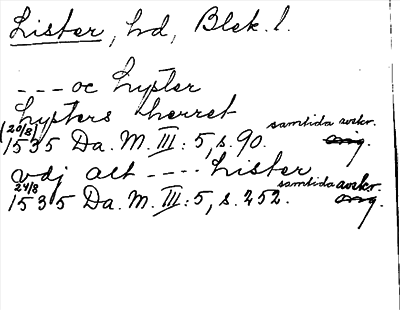 Lister, hd, Blek. l.
---- oc Lyster
Lysters herret
(20/8) samtida avskr.
1535 Da. M. III: 5, s. 90. orig.
vdj alt ---- Lister
24/8 samtida avskr.
1535 Da. M. III: 5, s. 252. orig.